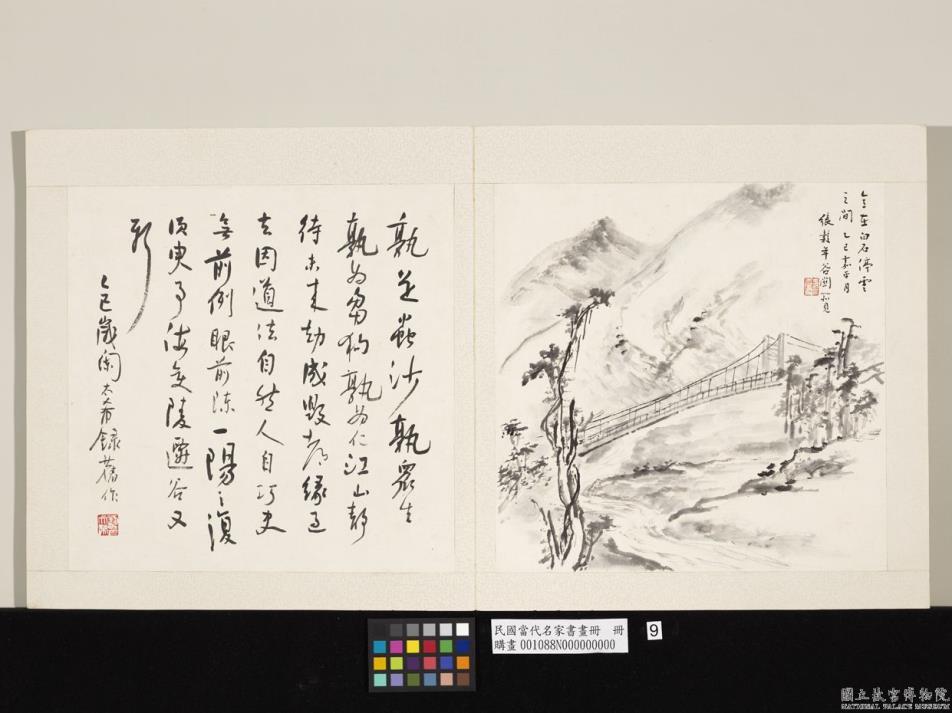 在白石停雲
之間乙巳嘉平月
張穀年
孰是蟲沙孰眾生
孰為芻狗孰為仁江山靜
待未來劫成毀都緣過
去因道法自然人自巧史
無前例眼前陳一陽之復
須臾事海變陵遷谷又
新
乙巳歲闌太希錄舊作
民國當代名家書畫冊 冊
購畫 001088N000000000
9
國立故宮博物院
NATIONAL PALACE MUSEUM